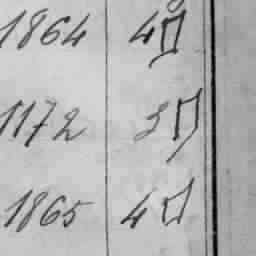 1864 4
1172 3
1865 4